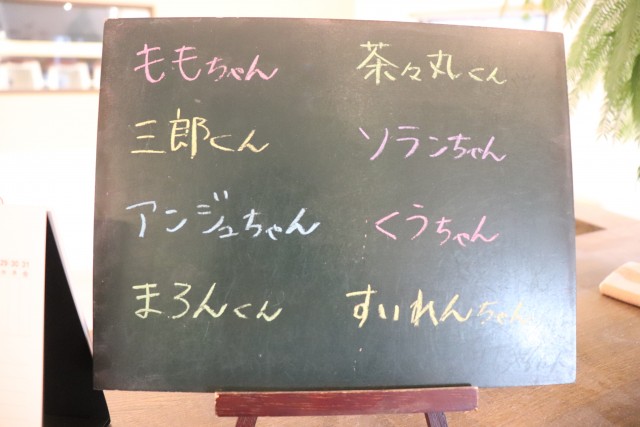 ももちゃん
茶々丸くん
三郎くん
ソランちゃん
アンジュちゃん
くうちゃん
まろんくん
すいれんちゃん
29 30 31